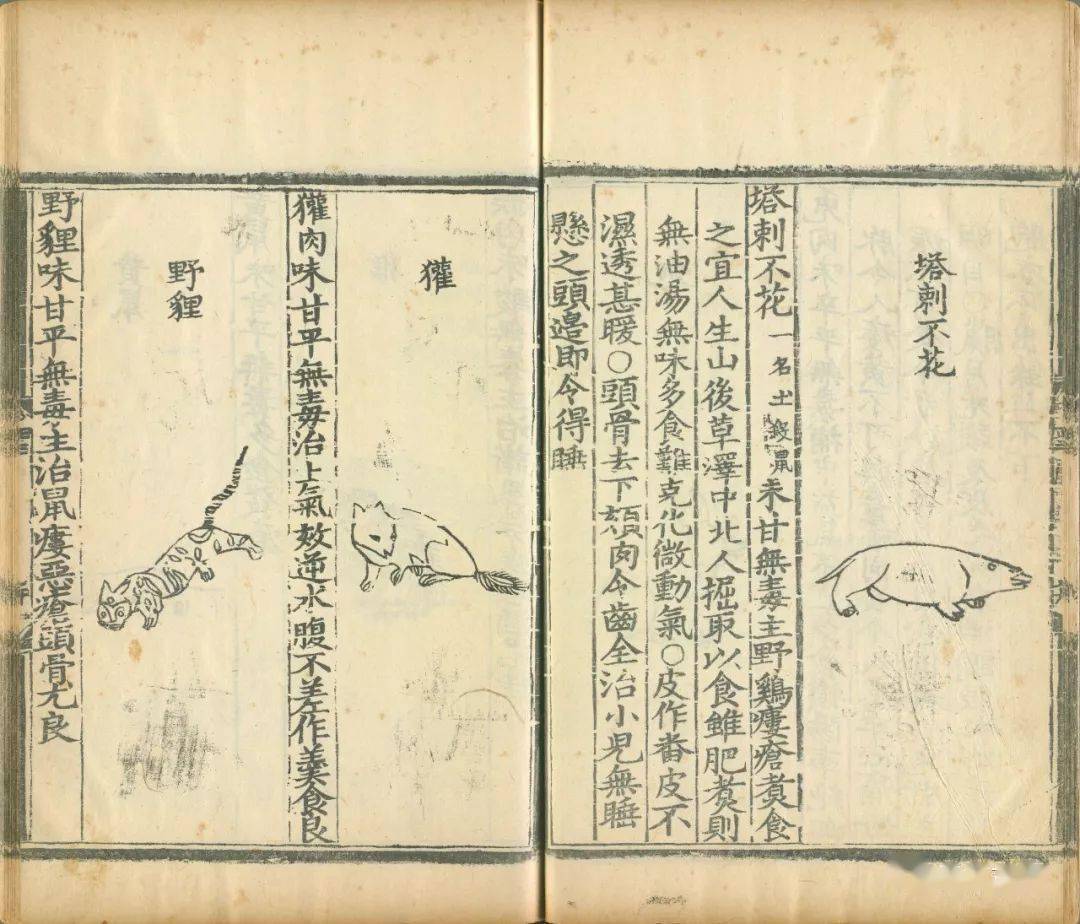 塔剌不花
塔剌不花 一名土撥鼠 味甘無毒主野雞瘻瘡煑食
之宜人生山後草澤中北人掘取以食雖肥煑則
無油湯無味多食難克化微動氣○皮作番皮不
濕透甚暖○頭骨去下頦肉令齒全治小兒無睡
懸之頭邊即令得睡
獾
獾肉味甘平無毒治上氣欬逆水脹不差作羹食良
野貍
野貍味甘平無毒主治鼠瘻惡瘡頭骨尤良